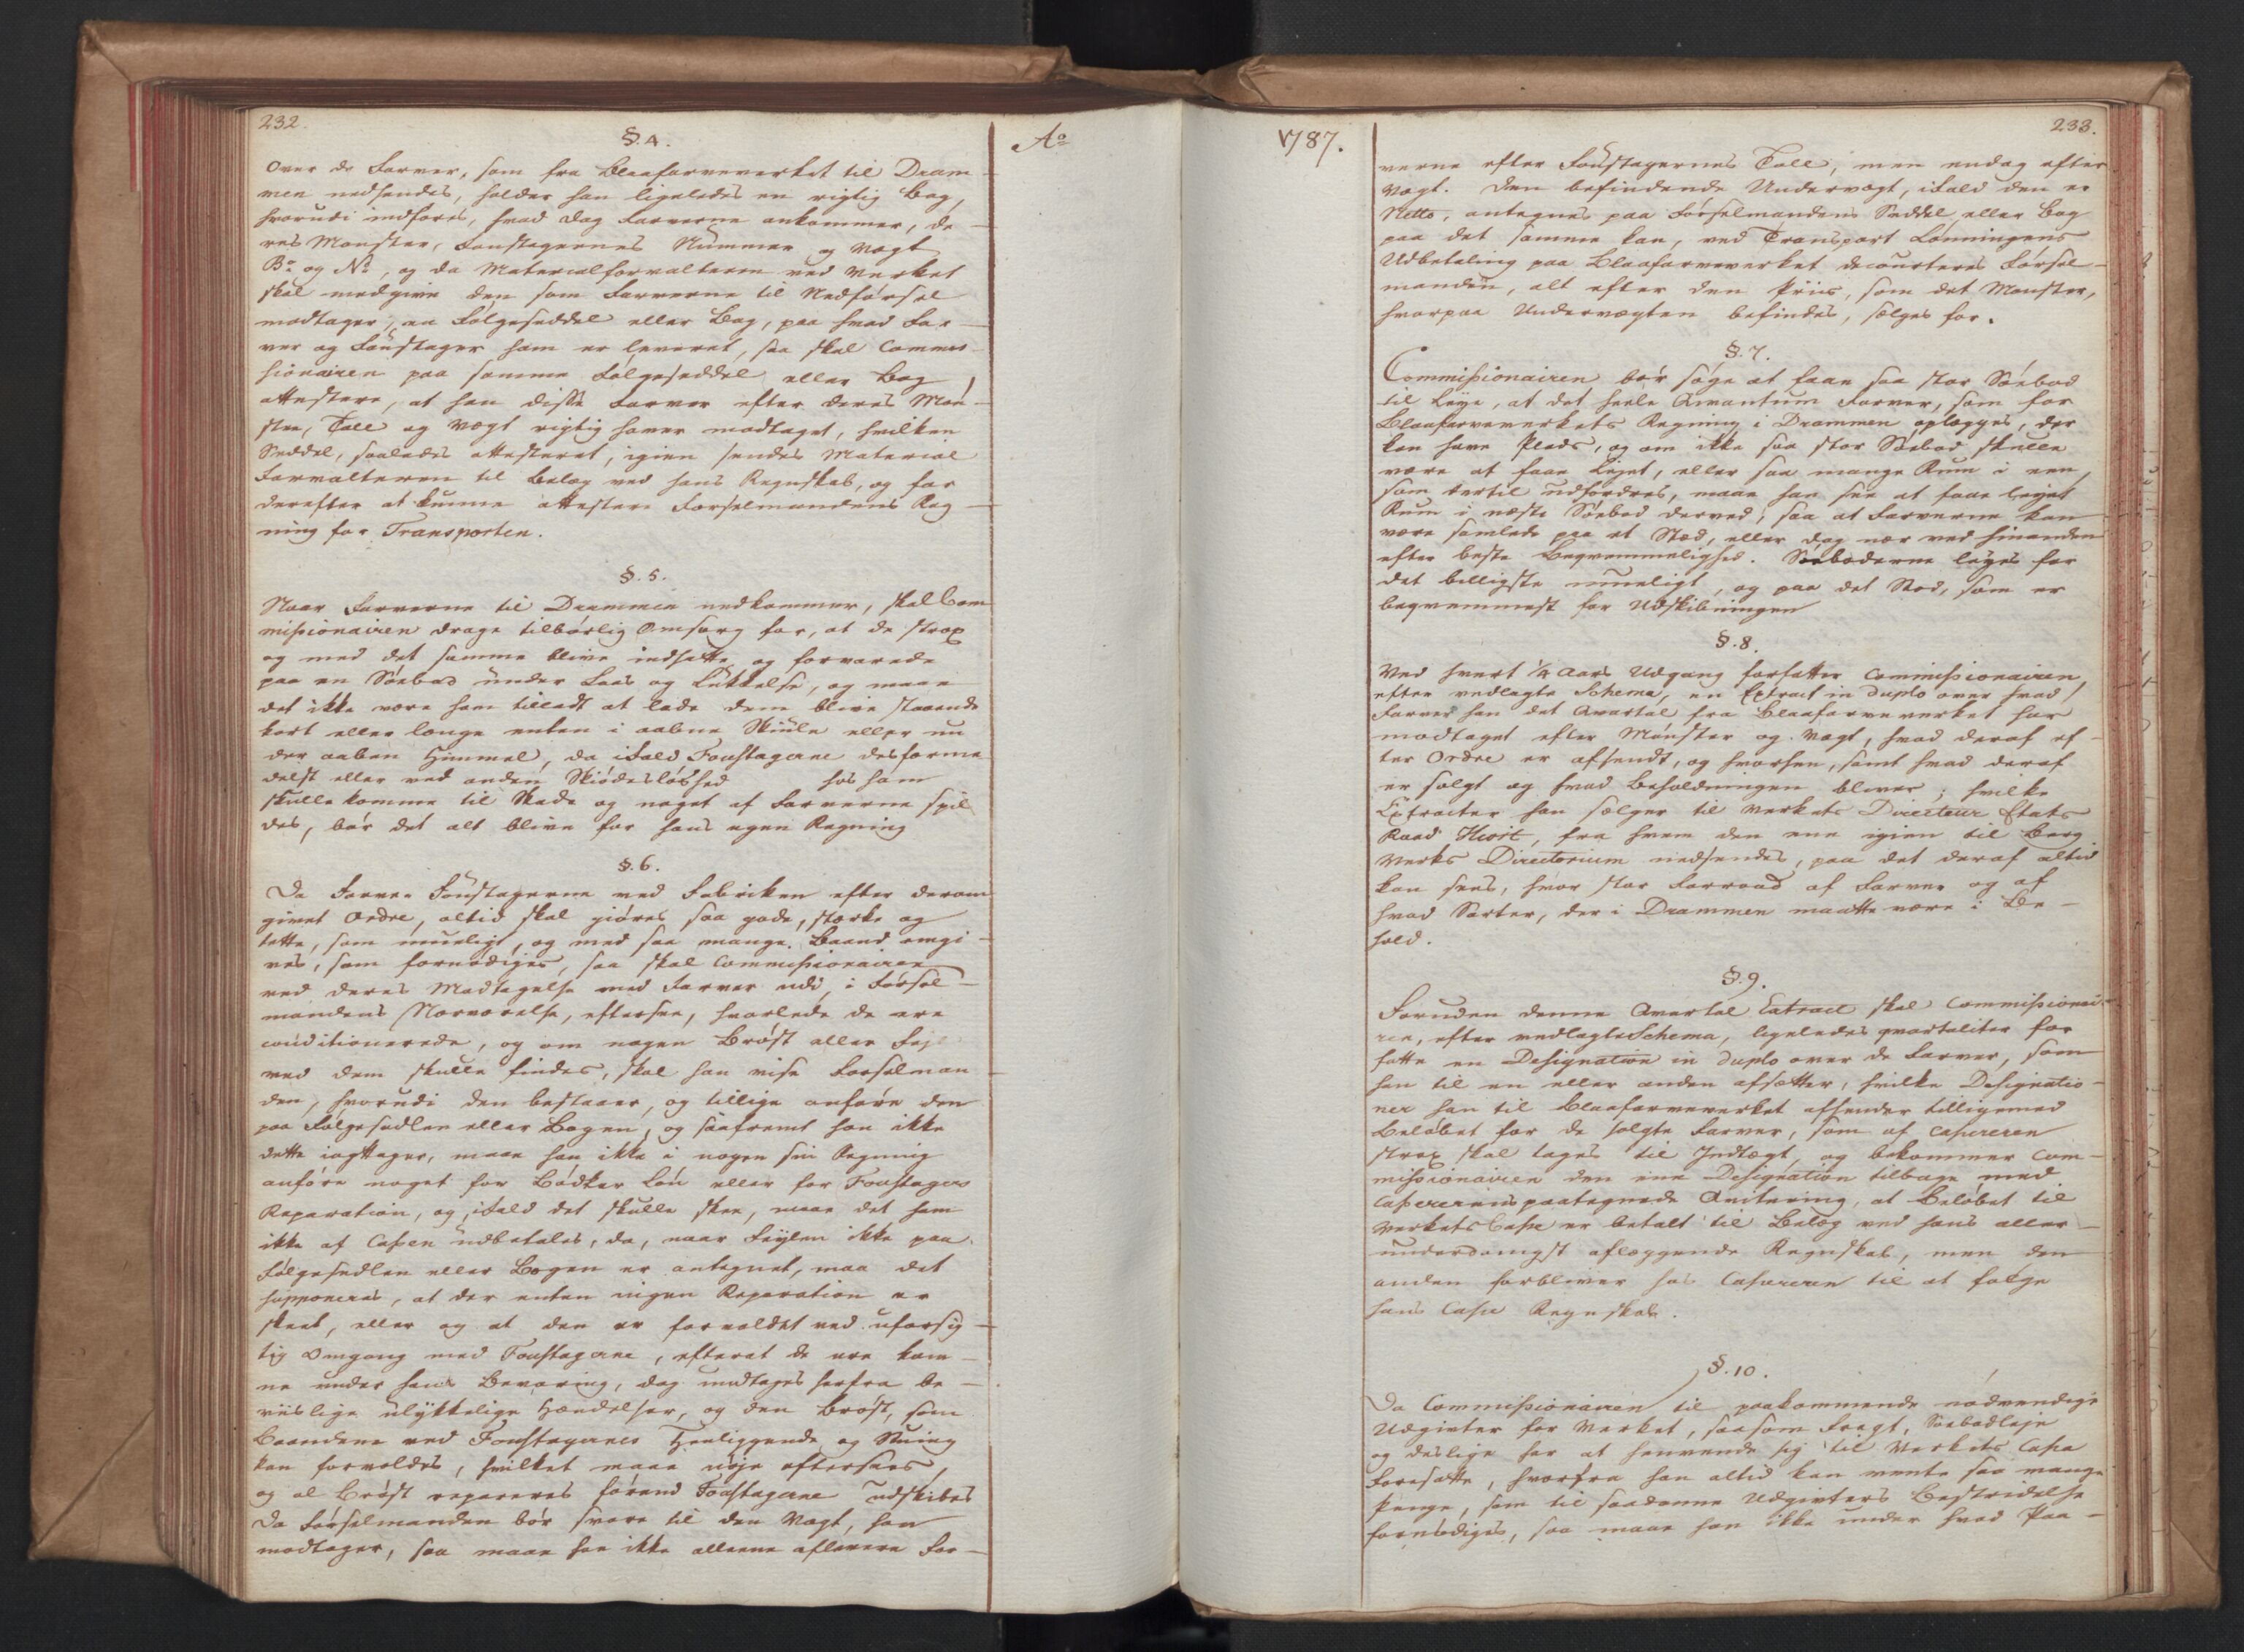 232.
§. 4.
Over de Farver, som fra Blaafarveverket til Dram-
men nedsendes, holder han ligeledes en rigtig Bog,
hvorudi indføres, hvad Dag Farverne ankommer, de-
res Mønster, Foustagernes Nummer og Vægt
Bo. og No., og da Materialforvalteren ved Verket
skal medgive den som Farverne til Nedførsel
modtager, en Følgeseddel eller Bog, paa hvad Far-
ver og Foustager ham er leveret, saa skal Commis-
sionairen paa samme Følgeseddel eller Bog
attestere, at han disse Farver efter deres Møn-
stre, Tall og Vægt rigtig haver modtaget, hvilken
Seddel, saaledes attesteret, igien sendes Material
Forvalteren til Belæg ved hans Regnskab, og for
derefter at kunne attestere Førselmandens Reg-
ning for Transporten.
§. 5.
Naar Farverne til Drammen nedkommer, skal Com
missionairen drage tilbørlig Omsorg for, at de strax
og med det samme blive indsatte og forvarede
paa en Søebod under Laas og Lukkelse, og maae
det ikke være ham tilladt at lade dem blive staaende
kort eller længe enten i aabne Skiule eller un
der aaben Himmel, da ifald Foustagerne desforme
delst eller ved anden Skiødesløshed hos ham
skulle komme til Skade og noget af Farverne spil
des, bør det alt blive for hans egen Regning
§. 6.
Da Farve-Foustagerne ved Fabriken efter derom
givet Ordre, altid skal giøres saa gode, stærke og
tætte, som mueligt, og med saa mange Baand omgi-
ves, som fornødiges, saa skal Commissionairen
ved deres Modtagelse med Farver udi, i Førsel-
mandens Nærværelse, eftersee, hvorlede de ere
conditionerede, og om nogen Brøst eller Fejl
ved dem skulle findes, skal han vise Førselman-
den, hvorudi den bestaaer, og tillige anføre den
paa Følgesedlen eller Bogen, og saafremt han ikke
dette iagttager, maae han ikke i nogen sin Regning
anføre noget for Bødker Løn eller for Foustagers
Reparation, og, ifald det skulle skee, maae det ham
ikke af Cassen udbetales, da, naar Feylen ikke paa
Følgesedlen eller Bogen er antegnet, maa det
supponeres, at der enten ingen Reparation er
skeet, eller og at den er forvoldet ved uforsig-
tig Omgang med Foustagerne, efterat de ere kom-
ne under hans Bevaring, dog undtages herfra be-
viislige ulykkelige Hændelser, og den Brøst, som
Baandene ved Foustagernes Henliggende og Stuing
kan forvoldes, hvilket maae nøje eftersees,
og al Brøst repareres førend Foustagerne udskibes
Da Førselmanden bør svare til den Vægt, han
modtager, saa maae han ikke alleene aflevere Far-
Ao
1787.
233.
verne efter Foustagernes Tall, men endog efter
Vægt. Den befindende Undervægt, ifald den er
Netto, antegnes paa Førselmandens Seddel eller Bog
paa det samme kan, ved Transport Lønningens
Udbetaling paa Blaafarveverket decourteres Førsel-
manden, alt efter den Priis, som det Mønster,
hvorpaa Undervægten befindes, sælges for.
§. 7.
Commissionairen bør søge at faae saa stor Søebod
til Leye, at det heele Qvantum Farver, som for
Blaafarveverkets Regning i Drammen oplægges, der
kan have Plads, og om ikke saa stor Søebod skulle
være at faae Lejet, eller saa mange Rum i een,
som dertil udfordres, maae han see at faae lejet
Rum i næste Søebod derved, saa at Farverne kan
være samlede paa et Sted, eller dog nær ved hinanden
efter beste Beqvemmelighed. Søeboderne lejes for
det billigste mueligt, og paa det Sted, som er
beqvemmest for Udskibningen
§. 8.
Ved hvert 1/4 Aars Udgang forfatter Commissionairen,
efter vedlagte Schema, en Extract in duplo over hvad
Farver han det Qvartal fra Blaafarveverket har
modtaget efter Mønster og Vægt, hvad deraf ef-
ter Ordre er afsendt, og hvorhen, samt hvad deraf
er solgt og hvad Beholdningen bliver; hvilke
Extracter han sælger til Verkets Directeur Etats
Raad Hiort, fra hvem den ene igien til Berg
Verks Directorium nedsendes, paa det deraf altid
kan sees, hvor stor Forraad af Farver og af
hvad Sorter, der i Drammen maatte være i Be-
hold.
§. 9.
Foruden denne Qvartal Extract skal Commissionai-
ren, efter vedlagte Schema, ligeledes qvartaliter for
fatte en Designation in duplo over de Farver, som
han til en eller anden afsætter, hvilke Designatio-
ner han til Blaafarveverket afsender tilligemed
Beløbet for de solgte Farver, som af Cassereren
strax skal tages til Indtægt, og bekommer Com-
missionairen den ene Designation tilbage med
Cassererens paategnede Qvitering, at Beløbet til
Verkets Casse er betalt til Belæg ved hans aller-
underdanigst aflæggende Regnskab, men den
anden forbliver hos Cassereren til at følge
hans Casse Regnskab.
§. 10.
Da Commissionairen til paakommende nødvendige
Udgivter for Verket, saasom Fragt, Søebodleje
og deslige har at henvende sig til Verkets Casse
Foresatte, hvorfra han altid kan vente saa mange
Penge, som til saadanne Udgivters Bestridelse
fornødiges, saa maae han ikke under hvad Paa-